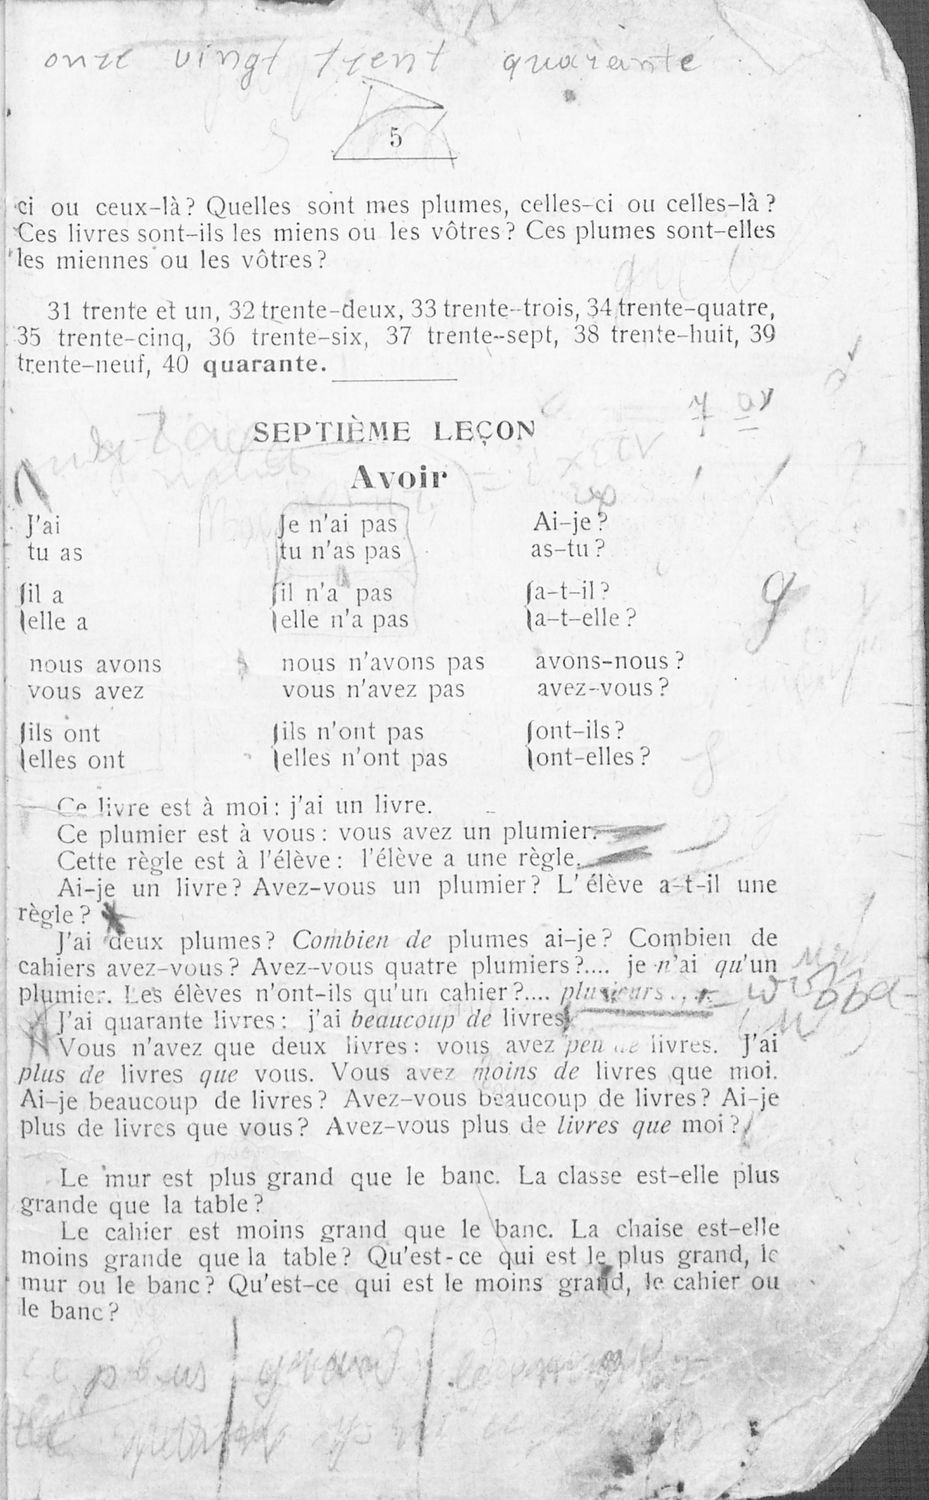 onze vingt trent quarante
5
ci ou ceux-là? Quelles sont mes plumes, celles-ci ou celles-là?
Ces livres sont-ils les miens ou les vôtres? Ces plumes sont-elles
les miennes ou les vôtres?
31 trente et un, 32 trente-deux, 33 trente-trois, 34 trente-quatre,
35 trente-cinq, 36 trente-six, 37 trente-sept, 38 trente-huit, 39
trente-neuf, 40 quarante.
SEPTIÈME LEÇON
Avoir
J'ai Je n'ai pas Ai-je?
tu as tu n'as pas as-tu?
il a il n'a pas a-t-il?
elle a elle n'a pas a-t-elle?
nous avons nous n'avons pas avons-nous?
vous avez vous n'avez pas avez-vous?
ils ont ils n'ont pas ont-ils?
elles ont elles n'ont pas ont-elles?
Ce livre est à moi: j'ai un livre.
Ce plumier est à vous: vous avez un plumier.
Cette règle est à l'élève: l'élève a une règle.
Ai-je un livre? Avez-vous un plumier? L'élève a-t-il une
règle?
J'ai deux plumes? Combien de plumes ai-je? Combien de
cahiers avez-vous? Avez-vous quatre plumiers?.... je n'ai qu'un
plumier. Les élèves n'ont-ils qu'un cahier?.... plusieurs...
J'ai quarante livres: j'ai beaucoup de livres
Vous n'avez que deux livres: vous avez peu de livres. J'ai
plus de livres que vous. Vous avez moins de livres que moi.
Ai-je beaucoup de livres? Avez-vous beaucoup de livres? Ai-je
plus de livres que vous? Avez-vous plus de livres que moi?
Le mur est plus grand que le banc. La classe est-elle plus
grande que la table?
Le cahier est moins grand que le banc. La chaise est-elle
moins grande que la table? Qu'est-ce qui est le plus grand, le
mur ou le banc? Qu'est-ce qui est le moins grand, le cahier ou
le banc?